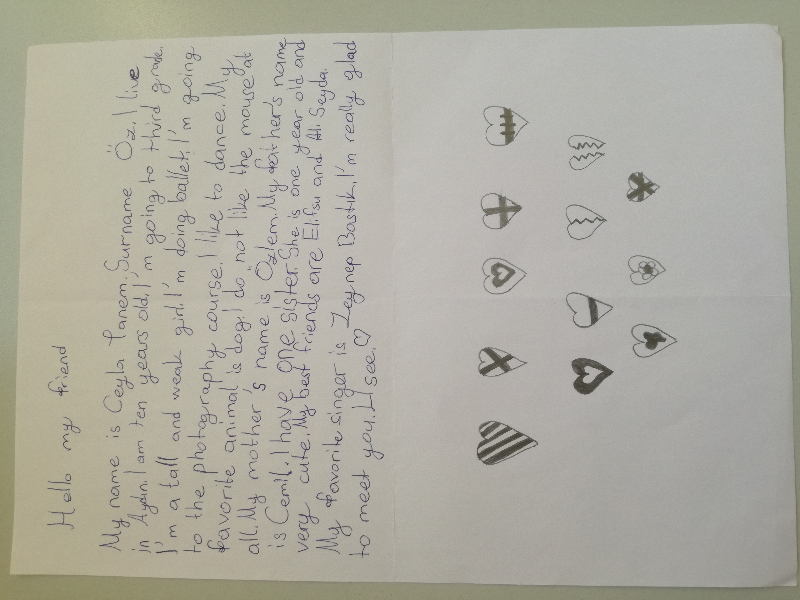 Hello my friend
My name is Ceyla Tanem. Surname Öz. I live
in Aydın. I am ten years old. I'm going to third grade.
I'm a tall and weak girl. I'm doing ballet. I'm going
to the photography course. I like to dance. My
favorite animal is dog. I do not like the mouse at
all. My mother's name is Özlem. My father's name
is Cemil. I have one sister. She is one year old and
very cute. My best friends are Elifsu and Ali Seyda.
My favorite singer is Zeynep Bastık. I'm really glad
to meet you. I see. ♡